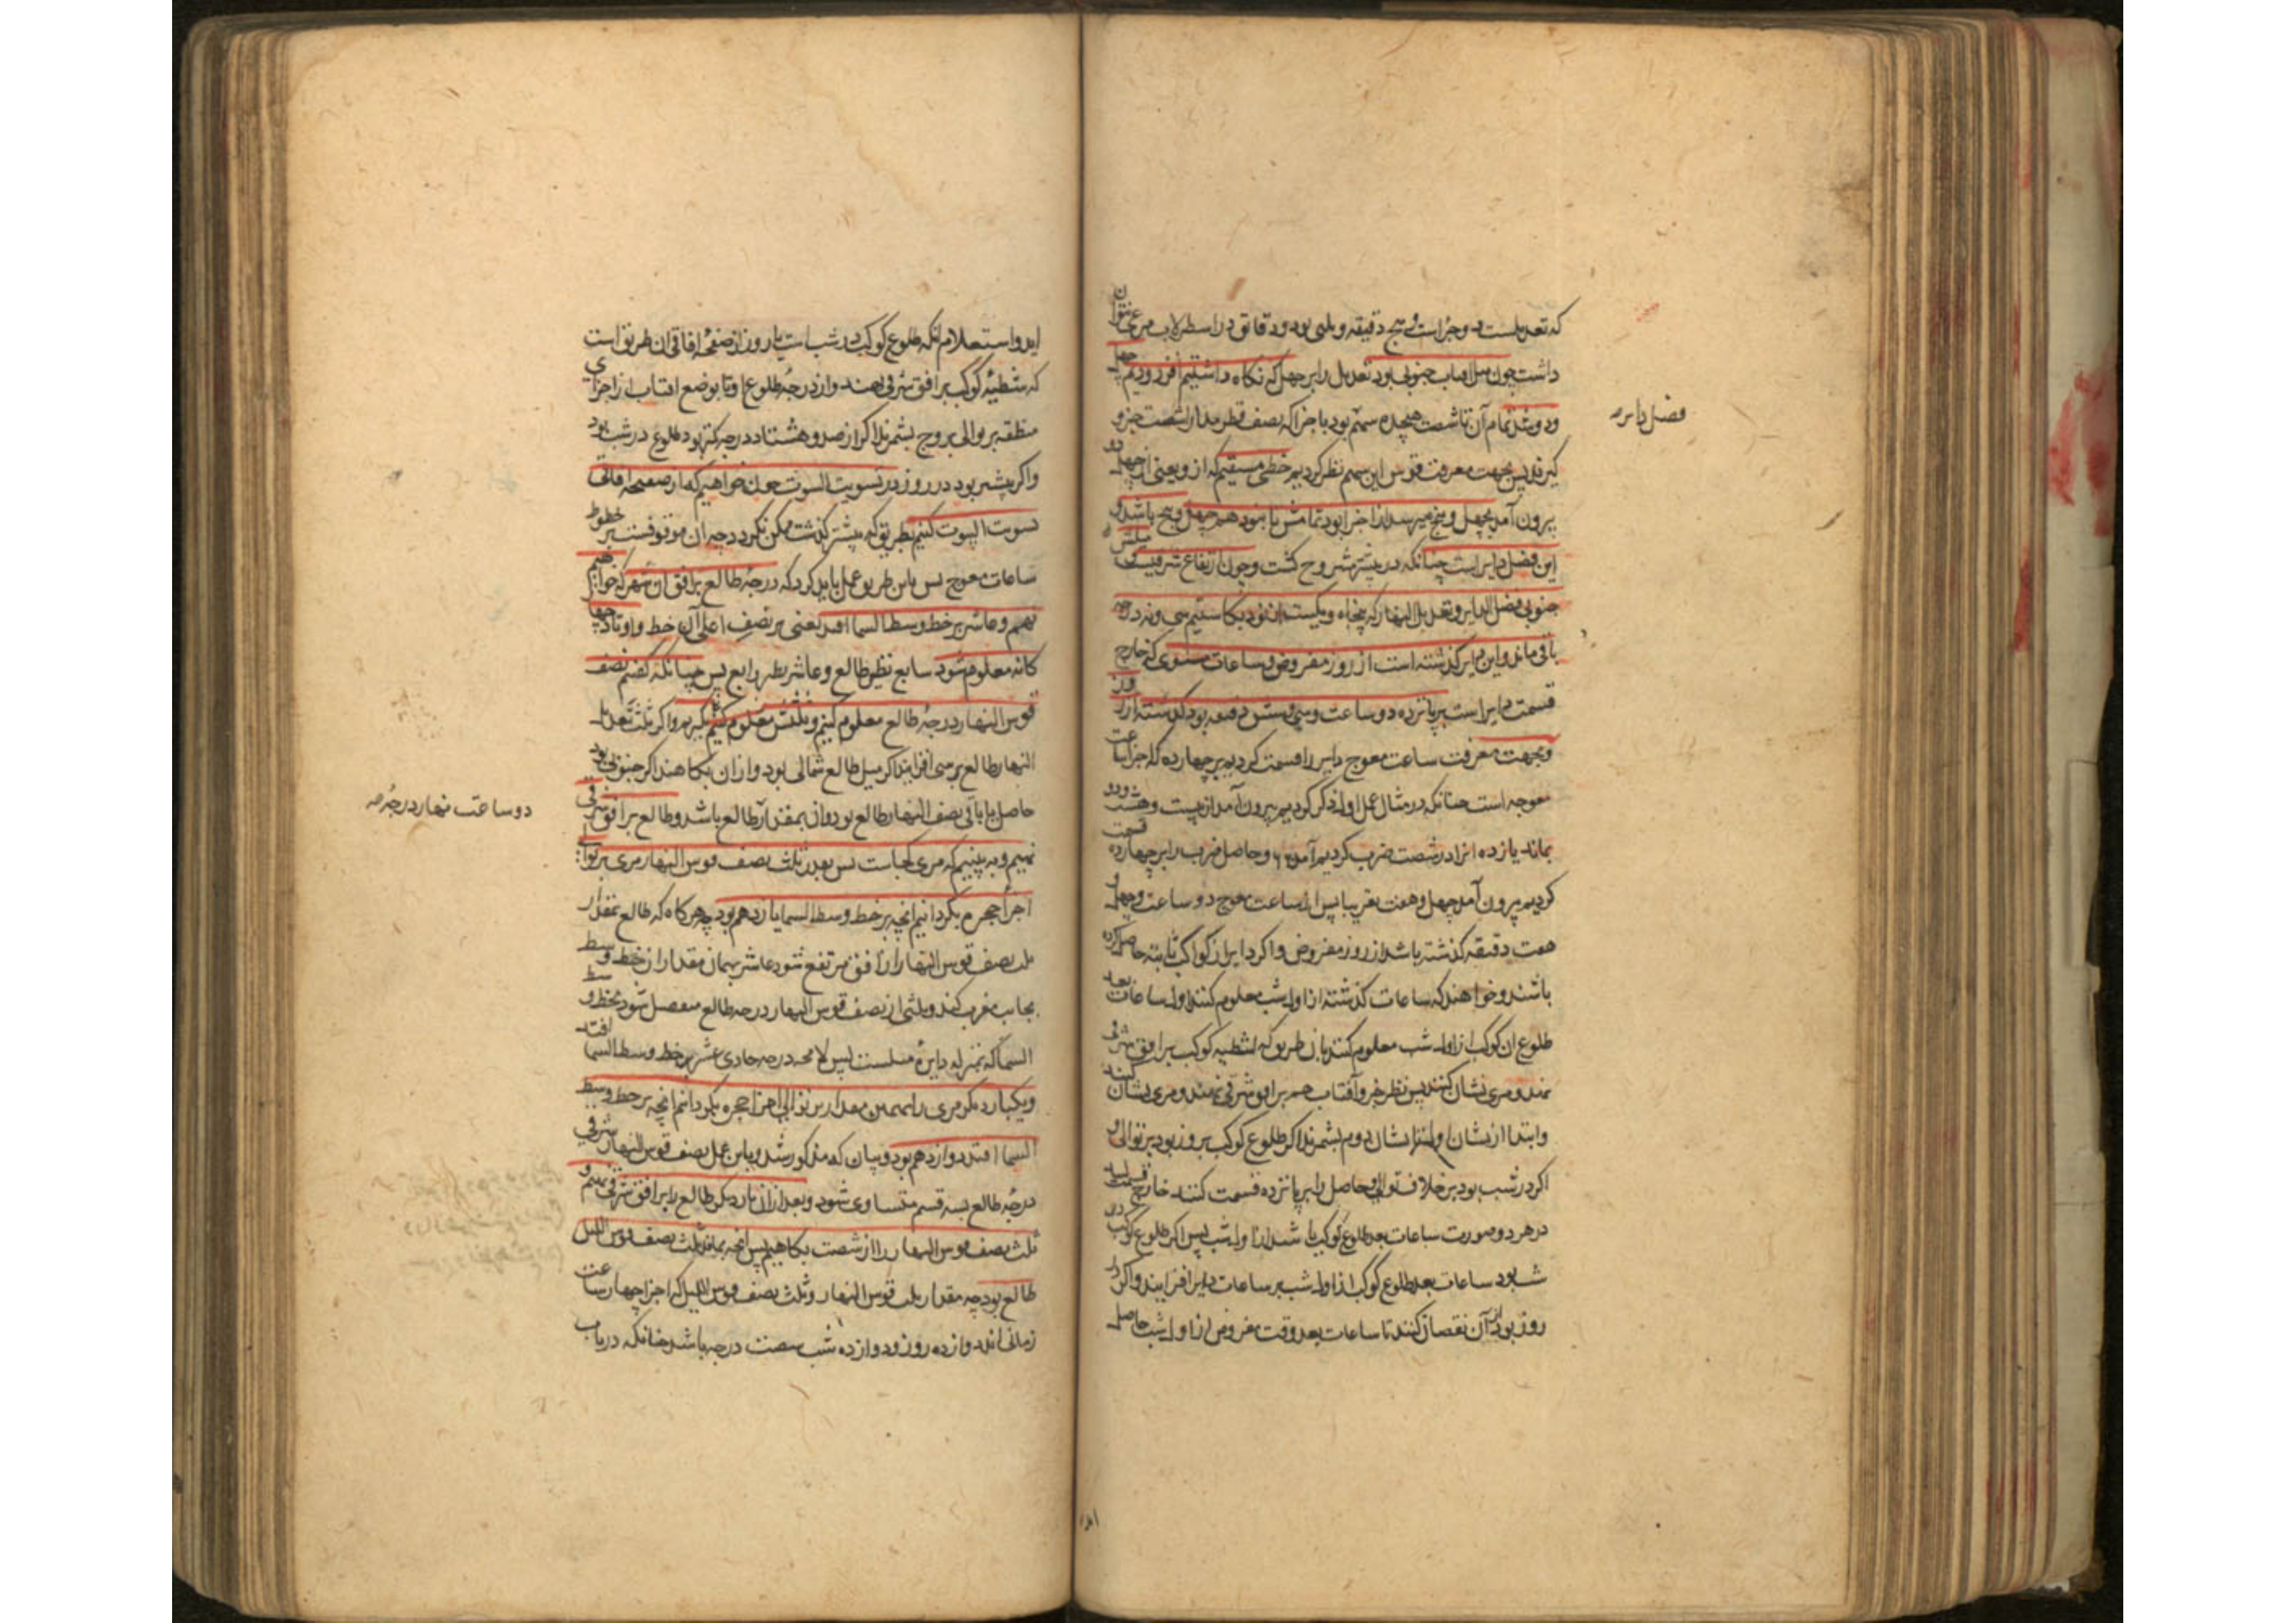 که تعدیلست دو جزاست و پنج دقیقه و ثلثی بود و دقایق در اسطرلاب مرعی نتوان
داشت چون میل افتاب جنوبی بود تعدیل را بر چهل که نکاه داشتیم افزودیم چهل
و دو شد تمام آن تا شصت هجده سهم بود باجزا که نصف قطر مدار شصت جزو
کیرند پس بجهت معرفت قوس این سهم نظر کردیم خطی مستقیم که از و یعنی از چهل دو
بیرون آمد بچهل و پنج میرسد از اجزا بود تمامش تا نود هم چهل و پنج باشد و
این فضل دایر است چنانکه در پیشتر مشروح کشت و چون ارتفاع شرقیست
جنوبی فضل الدایر و تعدیل النهار که پنجاه و یکست از نود بکاستیم سی و نه درجه
باقی ماند و این دایر کذشته است از روز مفروض و ساعات مستوی که خارج
قسمت دایر است بر پانزده دو ساعت و سی و شش دقیقه بود کذشته از روز
و بجهت معرفت ساعت معوج دایر را قسمت کردیم بر چهارده که اجزا ساعت
معوجه است چنانکه در مثال عمل اول ذکر کردیم بیرون آمد از بیست و هشت دو و
بماند یازده انرا در شصت ضرب کردیم آمد ۶۶۰ و حاصل ضرب را بر چهارده قسمت
کردیم بیرون آمد چهل و هفت تقریبا پس از ساعت معوج دو ساعت و چهل و
هفت دقیقه کذشته باشد از روز مفروض و اکر دایر از کواکب ثابته حاصل کرده
باشند و خواهند که ساعات کذشته از اول شب معلوم کنند اول ساعات بعد
طلوع ان کوکب از اول شب معلوم کنند بان طریق که شظیه کوکب بر افق شرقی
نهند و مری نشان کنند پس نظیر جزو آفتاب هم بر افق شرقی نهند و مری نشان کنند
و ابتدا از نشان اول تا نشان دوم بشمرند اکر طلوع کوکب بروز بود بر توالی و
اکر در شب بود بر خلاف توالی و حاصل را بر پانزده قسمت کنند خارج قسمت
در هر دو صورت ساعات بعد طلوع کوکب باشد از اول شب پس اکر طلوع کوکب در
شب بود ساعات بعد طلوع کوکب از اول شب بر ساعات دایر افزایند و اکر در
روز بود از آن نقصان کنند تا ساعات بعد وقت مفروض از اول شب حاصل
فضل دایره
اید و استعلام انکه طلوع کوکب در شب است یا روز از صفحۀ افاقی ان طریق است
که شظیۀ کوکب بر افق شرقی نهند و از درجۀ طلوع او تا موضع افتاب از اجزای
منطقه بر توالی بروج بشمرند اکر از صد و هشتاد درجه کمتر بود طلوع در شب بود
و اکر بیشتر بود در روز در تسویت البیوت چون خواهیم که از صفیحه افاقی
تسویت البیوت کنیم بطریق که پیشتر کذشت ممکن نکردد چه ان موقوفست بر خطوط
ساعات معوج پس باین طریق عمل باید کرد که درجۀ طالع بر افق ان شهر که خواهیم
نهیم و عاشر بر خط وسط السما افتد یعنی بر نصف اعلی آن خط و اوتاد چهار
کانه معلوم شود سابع نظیر طالع و عاشر نظیر رابع پس چنانکه کفتم نصف
قوس النهار درجۀ طالع معلوم کنیم و ثلثش معلوم کنیم بکیریم و اکر ثلث تعدیل
النهار طالع بر سی افزایند اکر میل طالع شمالی بود و از ان بکاهند اکر جنوبی بود
حاصل یا باقی نصف النهار طالع بود و ان بمقدار طالع باشد و طالع بر افق شرقی
نهیم و به بینیم که مری کجاست پس بعدد ثلث نصف قوس النهار مری بر توالی
اجزا حجره بکردانیم انچه بر خط وسط السما یازدهم بود چه هرکاه که طالع بمقدار
ثلث نصف قوس النهار از افق مرتفع شود عاشر بهمان مقدار از خط وسط
بجانب مغرب کند و ثلثی از نصف قوس النهار درجه طالع منفصل شود بخط وسط
السما که بمنزله دایرۀ میلست پس لا محه درجه حادی عشر بر خط وسط السما افتد
و یکبار دیکر مری را بهمین مقدار بر توالی اجزا حجره بکردانیم انچه بر خط وسط
السما افتد دوازدهم بود و بیان که مذکور شد و باین عمل نصف قوس النهار شرقی
درجۀ طالع بسه قسم متساوی شود و بعد از ان بار دیکر طالع را بر افق شرقی نهیم و
ثلث نصف قوس النهار را از شصت بکاهیم پس انچه بماند ثلث نصف قوس اللیل
طالع بود چه مقدار ثلث قوس النهار و ثلث نصف قوس اللیل که اجزا چهار ساعت
زمانی اند دوازده روز و دوازده شب شصت درجه باشد چنانکه در باب
دو ساعت نهار درجۀ